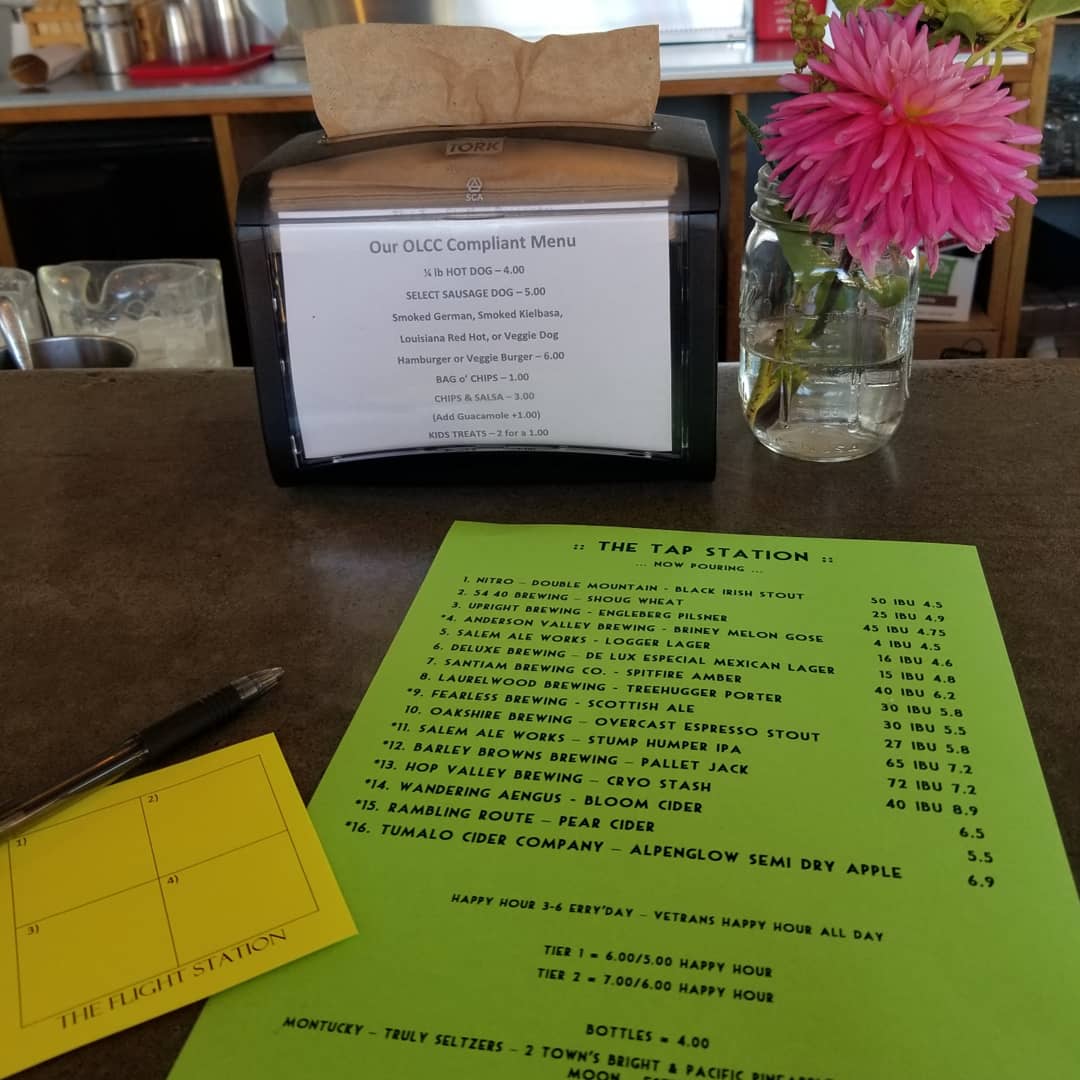 TORK
SCA
Our OLCC Compliant Menu
¼ lb HOT DOG – 4.00
SELECT SAUSAGE DOG – 5.00
Smoked German, Smoked Kielbasa,
Louisiana Red Hot, or Veggie Dog
Hamburger or Veggie Burger – 6.00
BAG o' CHIPS – 1.00
CHIPS & SALSA – 3.00
(Add Guacamole +1.00)
KIDS TREATS – 2 for a 1.00
:: THE TAP STATION ::
... NOW POURING ...
1. NITRO – DOUBLE MOUNTAIN - BLACK IRISH STOUT 50 IBU 4.5
2. 54 40 BREWING – SHOUG WHEAT 25 IBU 4.9
3. UPRIGHT BREWING - ENGLEBERG PILSNER 45 IBU 4.75
*4. ANDERSON VALLEY BREWING - BRINEY MELON GOSE 4 IBU 4.5
5. SALEM ALE WORKS - LOGGER LAGER 16 IBU 4.6
6. DELUXE BREWING – DE LUX ESPECIAL MEXICAN LAGER 15 IBU 4.8
7. SANTIAM BREWING CO. - SPITFIRE AMBER 40 IBU 6.2
8. LAURELWOOD BREWING - TREEHUGGER PORTER 30 IBU 5.8
*9. FEARLESS BREWING - SCOTTISH ALE 30 IBU 5.5
10. OAKSHIRE BREWING – OVERCAST ESPRESSO STOUT 27 IBU 5.8
*11. SALEM ALE WORKS – STUMP HUMPER IPA 65 IBU 7.2
*12. BARLEY BROWNS BREWING – PALLET JACK 72 IBU 7.2
*13. HOP VALLEY BREWING – CRYO STASH 40 IBU 8.9
*14. WANDERING AENGUS - BLOOM CIDER 6.5
*15. RAMBLING ROUTE – PEAR CIDER 5.5
*16. TUMALO CIDER COMPANY – ALPENGLOW SEMI DRY APPLE 6.9
HAPPY HOUR 3-6 ERRY'DAY – VETRANS HAPPY HOUR ALL DAY
TIER 1 = 6.00/5.00 HAPPY HOUR
TIER 2 = 7.00/6.00 HAPPY HOUR
BOTTLES = 4.00
MONTUCKY – TRULY SELTZERS – 2 TOWN'S BRIGHT & PACIFIC
MOON
1)
2)
3)
4)
THE FLIGHT STATION